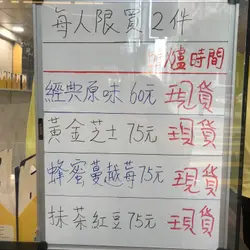 每人限買2件
出爐時間
經典原味 60元 現貨
黃金芝士 75元 現貨
蜂蜜蔓越莓 75元 現貨
抹茶紅豆 75元 現貨